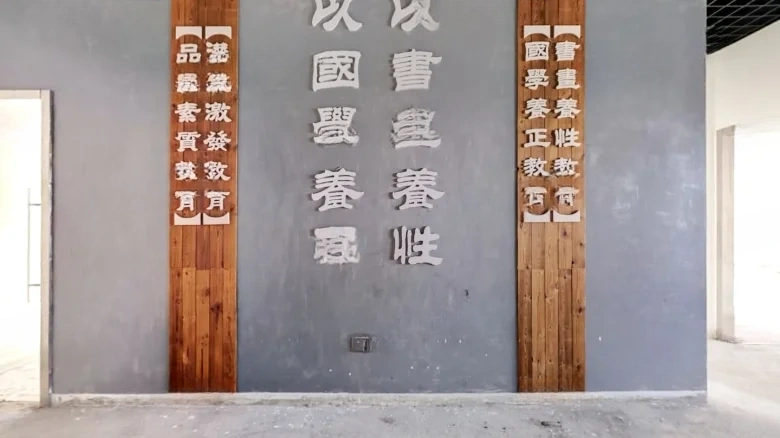 書畫養性教育
國學養正教育
以書畫養性
以國學養
激發教育
品素質教育